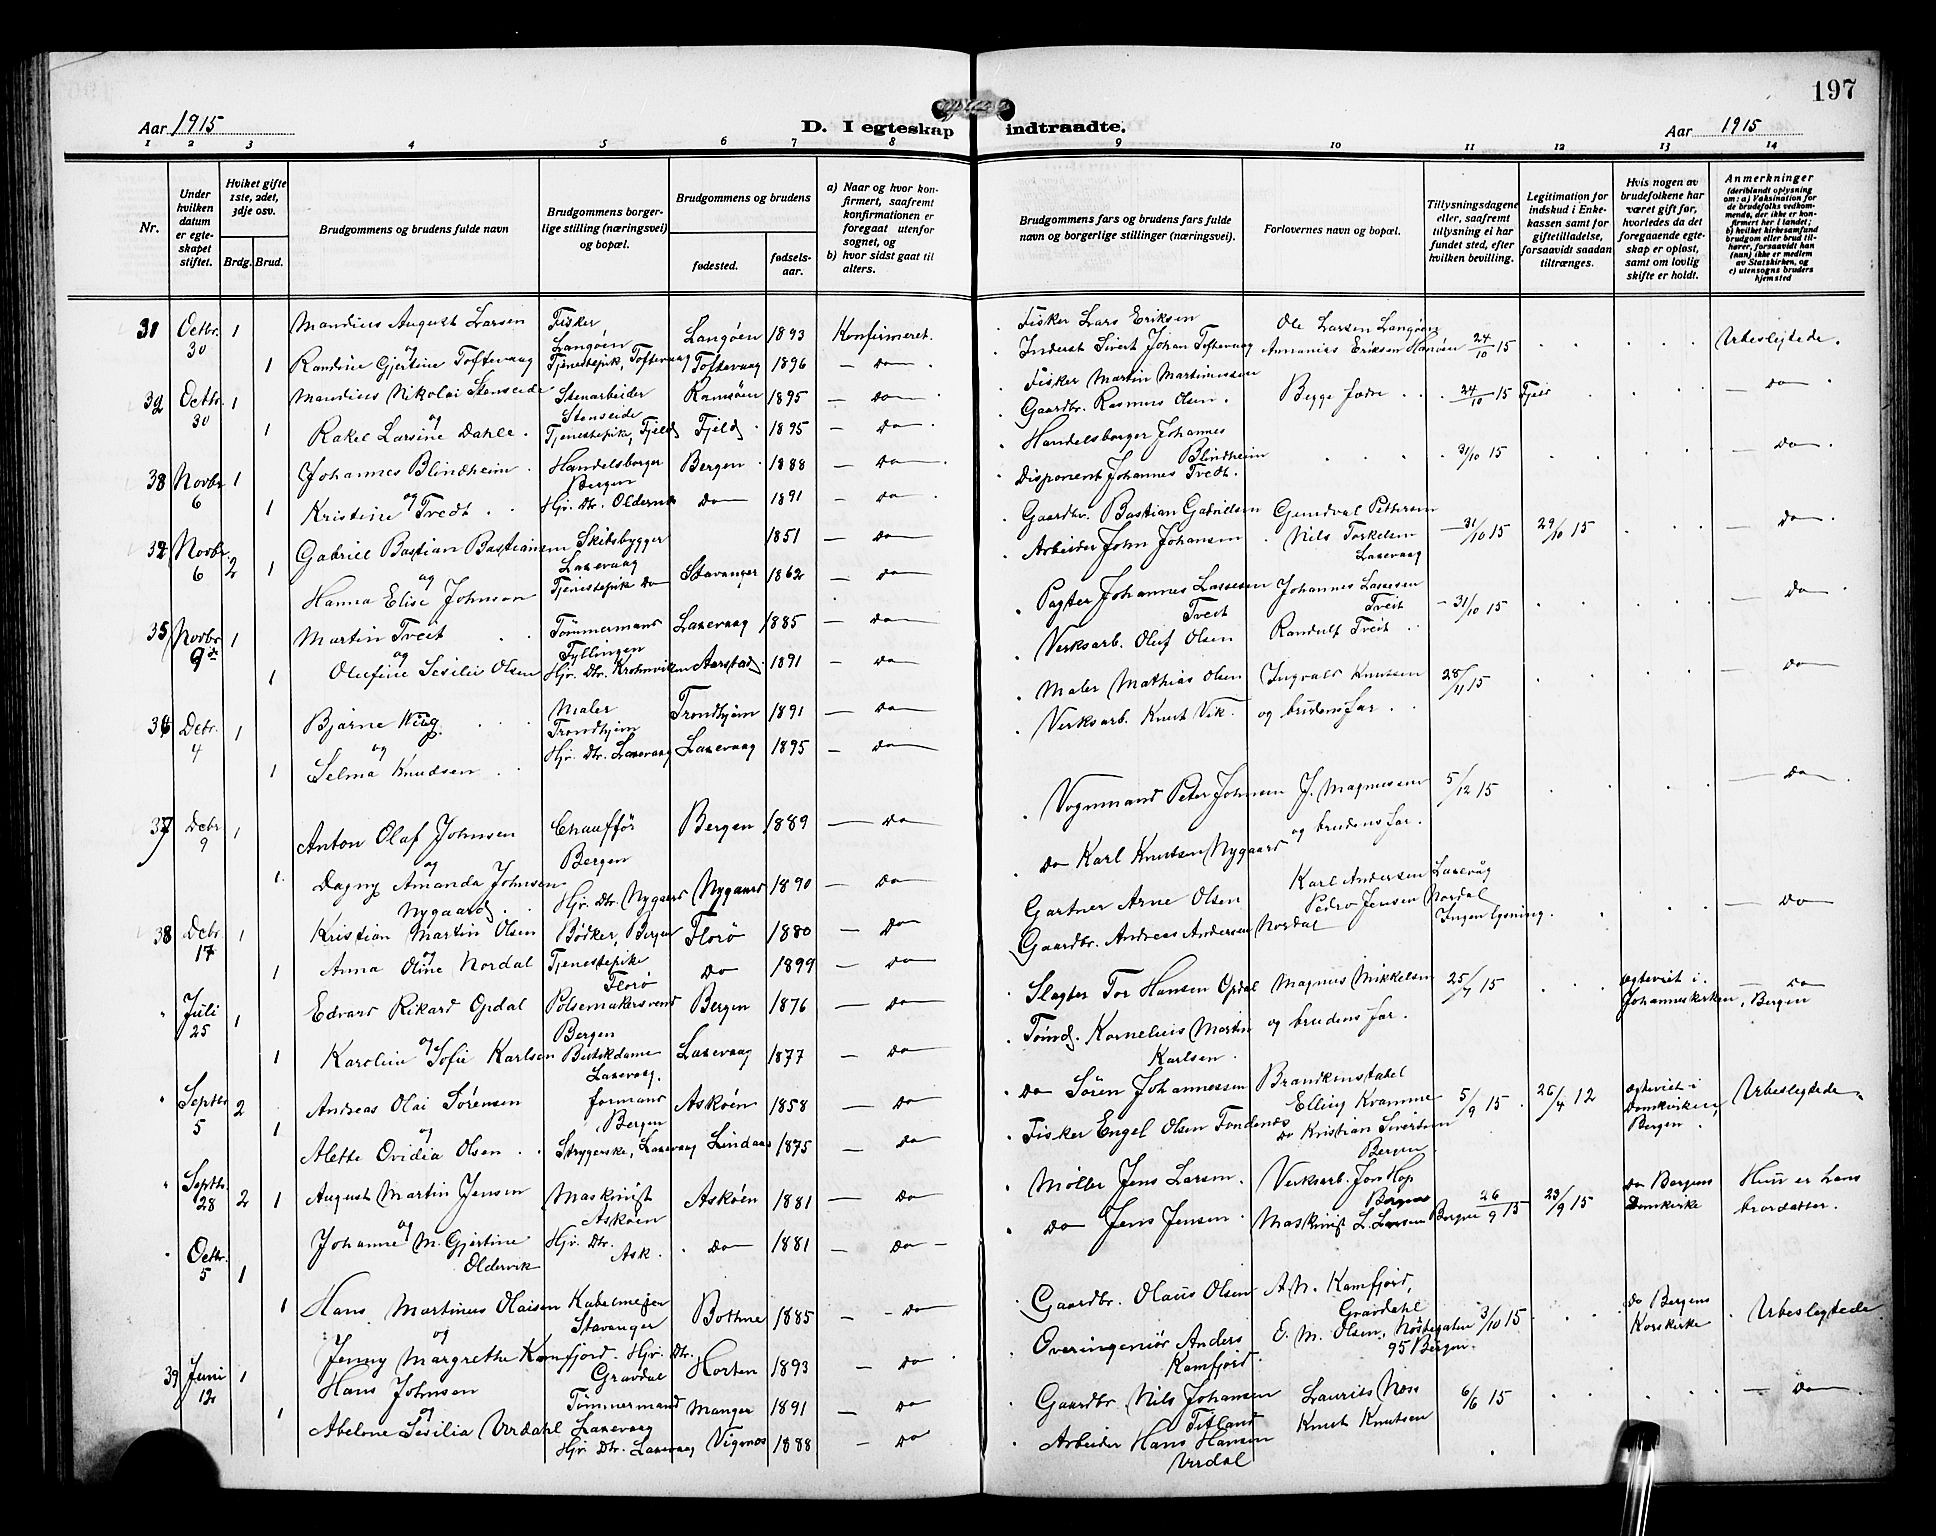 197
Aar 1915
D. I egteskap indtraadte.
Aar 1915
1 2 3 4 5 6 7 8 9 10 11 12 13 14
Nr.
Under hvilken datum er egteskapet stiftet.
Hviket gifte 1ste, 2det, 3dje osv.
Brdg. Brud.
Brudgommens og brudens fulde navn
Brudgommens borgerlige stilling (næringsvei) og bopæl.
Brudgommens og brudens
fødested.
fødselsaar.
a) Naar og hvor konfirmert, saafremt konfirmationen er foregaat utenfor sognet, og
b) hvor sidst gaat til alters.
Brudgommens fars og brudens fars fulde navn og borgerlige stillinger (næringsvei).
Forlovernes navn og bopæl.
Tillysningsdagene eller, saafremt tillysning ei har fundet sted, efter hvilken bevilling.
Legitimation for indskud i Enkekassen samt for giftetilladelse, forsaavidt saadan tiltrænges.
Hvis nogen av brudefolkene har været gift før, hvorledes da det foregaaende egteskap er opløst, samt om lovlig skifte er holdt.
Anmerkninger (deriblandt oplysning om: a) Vaksination for de brudefolks vedkommende, der ikke er konfirmert her i landet; b) hvilket kirkesamfund brudgom eller brud tilhører, forsaavidt han (hun) ikke er medlem av Statskirken, og c) utensogns bruders hjemsted
31 Octbr. 30 1 Mandius August Larsen Fisker Langøen Langöen 1893 Konfirmeret. Fisker Lars Eriksen Ole Larsen Langöen 24/10 15 Ubeslegtede.
og
1 Randine Gjertine Toftevaag Tjenestepik, Toftevaag Toftevaag 1896 — do — Inderst Sivert Johan Toftevaag Annanias Eriksen Hanöen
32 Octbr. 30 1 Mandius Nikolai Stenseide Stenarbeider Stenseide Ramsöen 1895 — do — Fisker Martin Martinussen Begge fædre 24/10 15 Fjeld — do —
og
1 Rakel Larsine Dahle. Tjenestepik, Fjeld Fjeld 1895 — do — Gaardbr. Rasmus Olsen.
33 Novbr 6 1 Johannes Blindheim Handelsborger Bergen Bergen 1888 — do — Handelsborger Johannes Blindheim 31/10 15 — do —
og
1 Kristine Tvedt Hjv. Dtr. do 1891 — do — Disponent Johannes Tvedt.
34 Novbr. 6 2 Gabriel Bastian Bastiansen Skibsbygger Laxevaag 1851 — do — Gaardbr. Bastian Gabrielsen Pettersen 31/10 15 29/10 15 — do —
og
1 Hanna Elise Johnson Tjenestepike do Stavanger 1862 — do — Arbeider John Johansen Nils Torkelsen Laxevaag
35 Novbr 9de 1 Martin Tveit Tømmermand Fyllingen Laxevaag 1885 — do — Pagter Johannes Lassesen Tveit Johannes Lassesen Tveit 31/10 15 — do —
og
1 Olufine Sesilie Olsen Hjv. Dtr. Krohnviken Aarstad 1891 — do — Verksarb. Oluf Olsen Randulf Tveit
36 Debr. 4 1 Bjarne Wiig. Maler Trondhjem Trondhjem 1891 — do — Maler Mathias Olsen Ingvald Knutsen 28/11 15 — do —
og
1 Selma Knudsen Hjv. Dtr. Laxevaag Laxevaag 1895 — do — Verksarb. Knut Vik. og brudens far.
37 Debr 9 1 Anton Olaf Johnsen Chauffør Bergen Bergen 1889 — do — Vognmand Peter Johnsen J. Magnussen 5/12 15 — do —
og
1 Dagny Amanda Johnsen Nygaard. Hjv. Dtr. Nygaard Nygaard 1890 — do — do Karl Knutsen Nygaard og brudens far.
38 Debr 17 1 Kristian Martin Olsen Bødker, Bergen Florö 1880 — do — Gartner Arne Olsen Karl Andersen Laxevåg Ingen lysning. — do —
og
1 Anna Oline Nordal Tjenestepike Florö do 1899 — do — Gaardbr. Andreas Andersen Nordal Pedro Jensen Nordal
" Juli 25 1 Edvard Rikard Opdal Pølsemakersvend Bergen Bergen 1876 — do — Slagter Tor Hansen Opdal Magnus Mikkelsen 25/7 15 egteviet i Johanneskirken, Bergen — do —
og
1 Karoline Sofie Karlsen Butikdame Laxevaag. Laxevaag 1877 — do — Tønd. Kornelius Martin Karlsen. og brudens far.
" Septbr 5 2 Andreas Olai Sørensen formand, Bergen Askøen 1858 — do — do Sören Johannessen Brandkonstabel Elling Kvamme 5/9 15 26/4 12 egteviet i Domkirken, Bergen. Ubeslegtede
og
1 Alette Ovidia Olsen Strygerske, Laxevaag Lindaas 1875 — do — Fisker Engel Olsen Fondenes do Kristian Sivertsen Bergen
" Septbr. 28 2 1 August Martin Jensen Maskinist Askøen Askøen 1881 — do — Møller Jens Larsen. Verksarb. Jon Hop Bergen 26/9 15 23/9 15 do Bergens Domkirke Hun er hans brordatter.
og
Johanne M. Gjertine Oldervik Hjv. Dtr. Ask. do 1881 — do — do Jens Jensen. Maskinist L. Larsen Bergen
" Octbr. 5 1 1 Hans Martinus Olaisen Stavanger Bothne 1885 — do — Gaardbr. Olaus Olsen A. N. Kamfjord, Gravdahl 3/10 15 do Bergens Korskirke Ubeslegtede
og
Jenny Margrethe Kamfjord. Hjv. Dtr. Gravdal Horten 1893 — do — Overingeniör Anders Kamfjord. E. M. Olsen, Nöstegaten 95 Bergen.
39 Juni 12 1 Hans Johnsen Tømmermand Laxevaag Manger 1891 — do — Gaardbr. Nils Johansen Titland Laurits Næss 6/6 15 — do —
og
1 Abelone Sesilia Urdahl Hjv. Dtr. Laxevaag Vigenes 1888 — do — Arbeider Hans Hansen Urdal Knut Knutsen